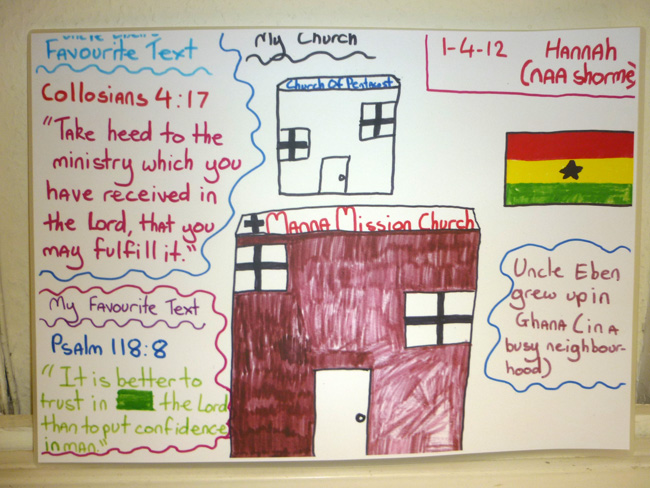 Favourite Text
Collosians 4:17
"Take heed to the
ministry which you
have received in
the Lord, that you
may fulfill it."
My Favourite Text
Psalm 118:8
"It is better to
trust in the Lord
than to put confidence
in man."
My Church
Church Of Pentecost
Manna Mission Church
1-4-12 Hannah
(Naa Shorme)
Uncle Eben
grew up in
Ghana (in a
busy neighbour-
hood)